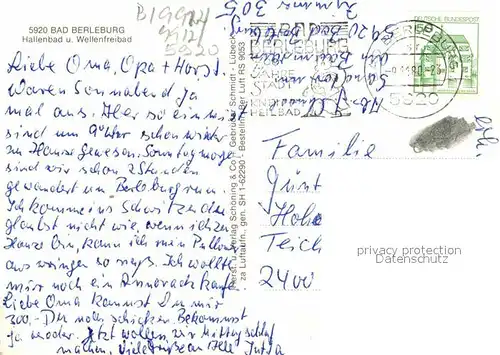 5920 BAD BERLEBURG
Hallenbad u. Wellenfreibad
B1992H
5920
Liebe Oma, Opa + Horst.
Waren Sonnabend ja
mal aus. Aber so ein
sind um 9 Uhr schon wieder
zu Hause gewesen. Sonntagmorgen
sind wir schon 2 Stunden
gewandert um Berleburg rum.
Ich komme ins Schwitzen du
glaubst nicht wie, wenn ich zu
Hause bin, kann ich mein Pullover
auswringen so nass. Ich wollte
mir noch ein Annorack kaufen
Liebe Oma kannst Du mir
300,- DM noch schicken Bekommst
ja wieder. Jetzt wollen wir Mittagschlaf
machen. Viele Grüße an Alle Jutta
Herst. u. Verlag Schöning & Co + Gebrüder Schmidt - Lübeck
za Luftaufn. gen. SH 1-62290 - Bestellnummer Luft RS 9053
Zimmer 305
5920 Bad
BAD
BERLEBURG
JAHRE
STADT
HEILBAD
BERLEBURG
5920
DEUTSCHE BUNDESPOST
Familie
Günt
Hohe
Teich
2400
privacy protection
Datenschutz